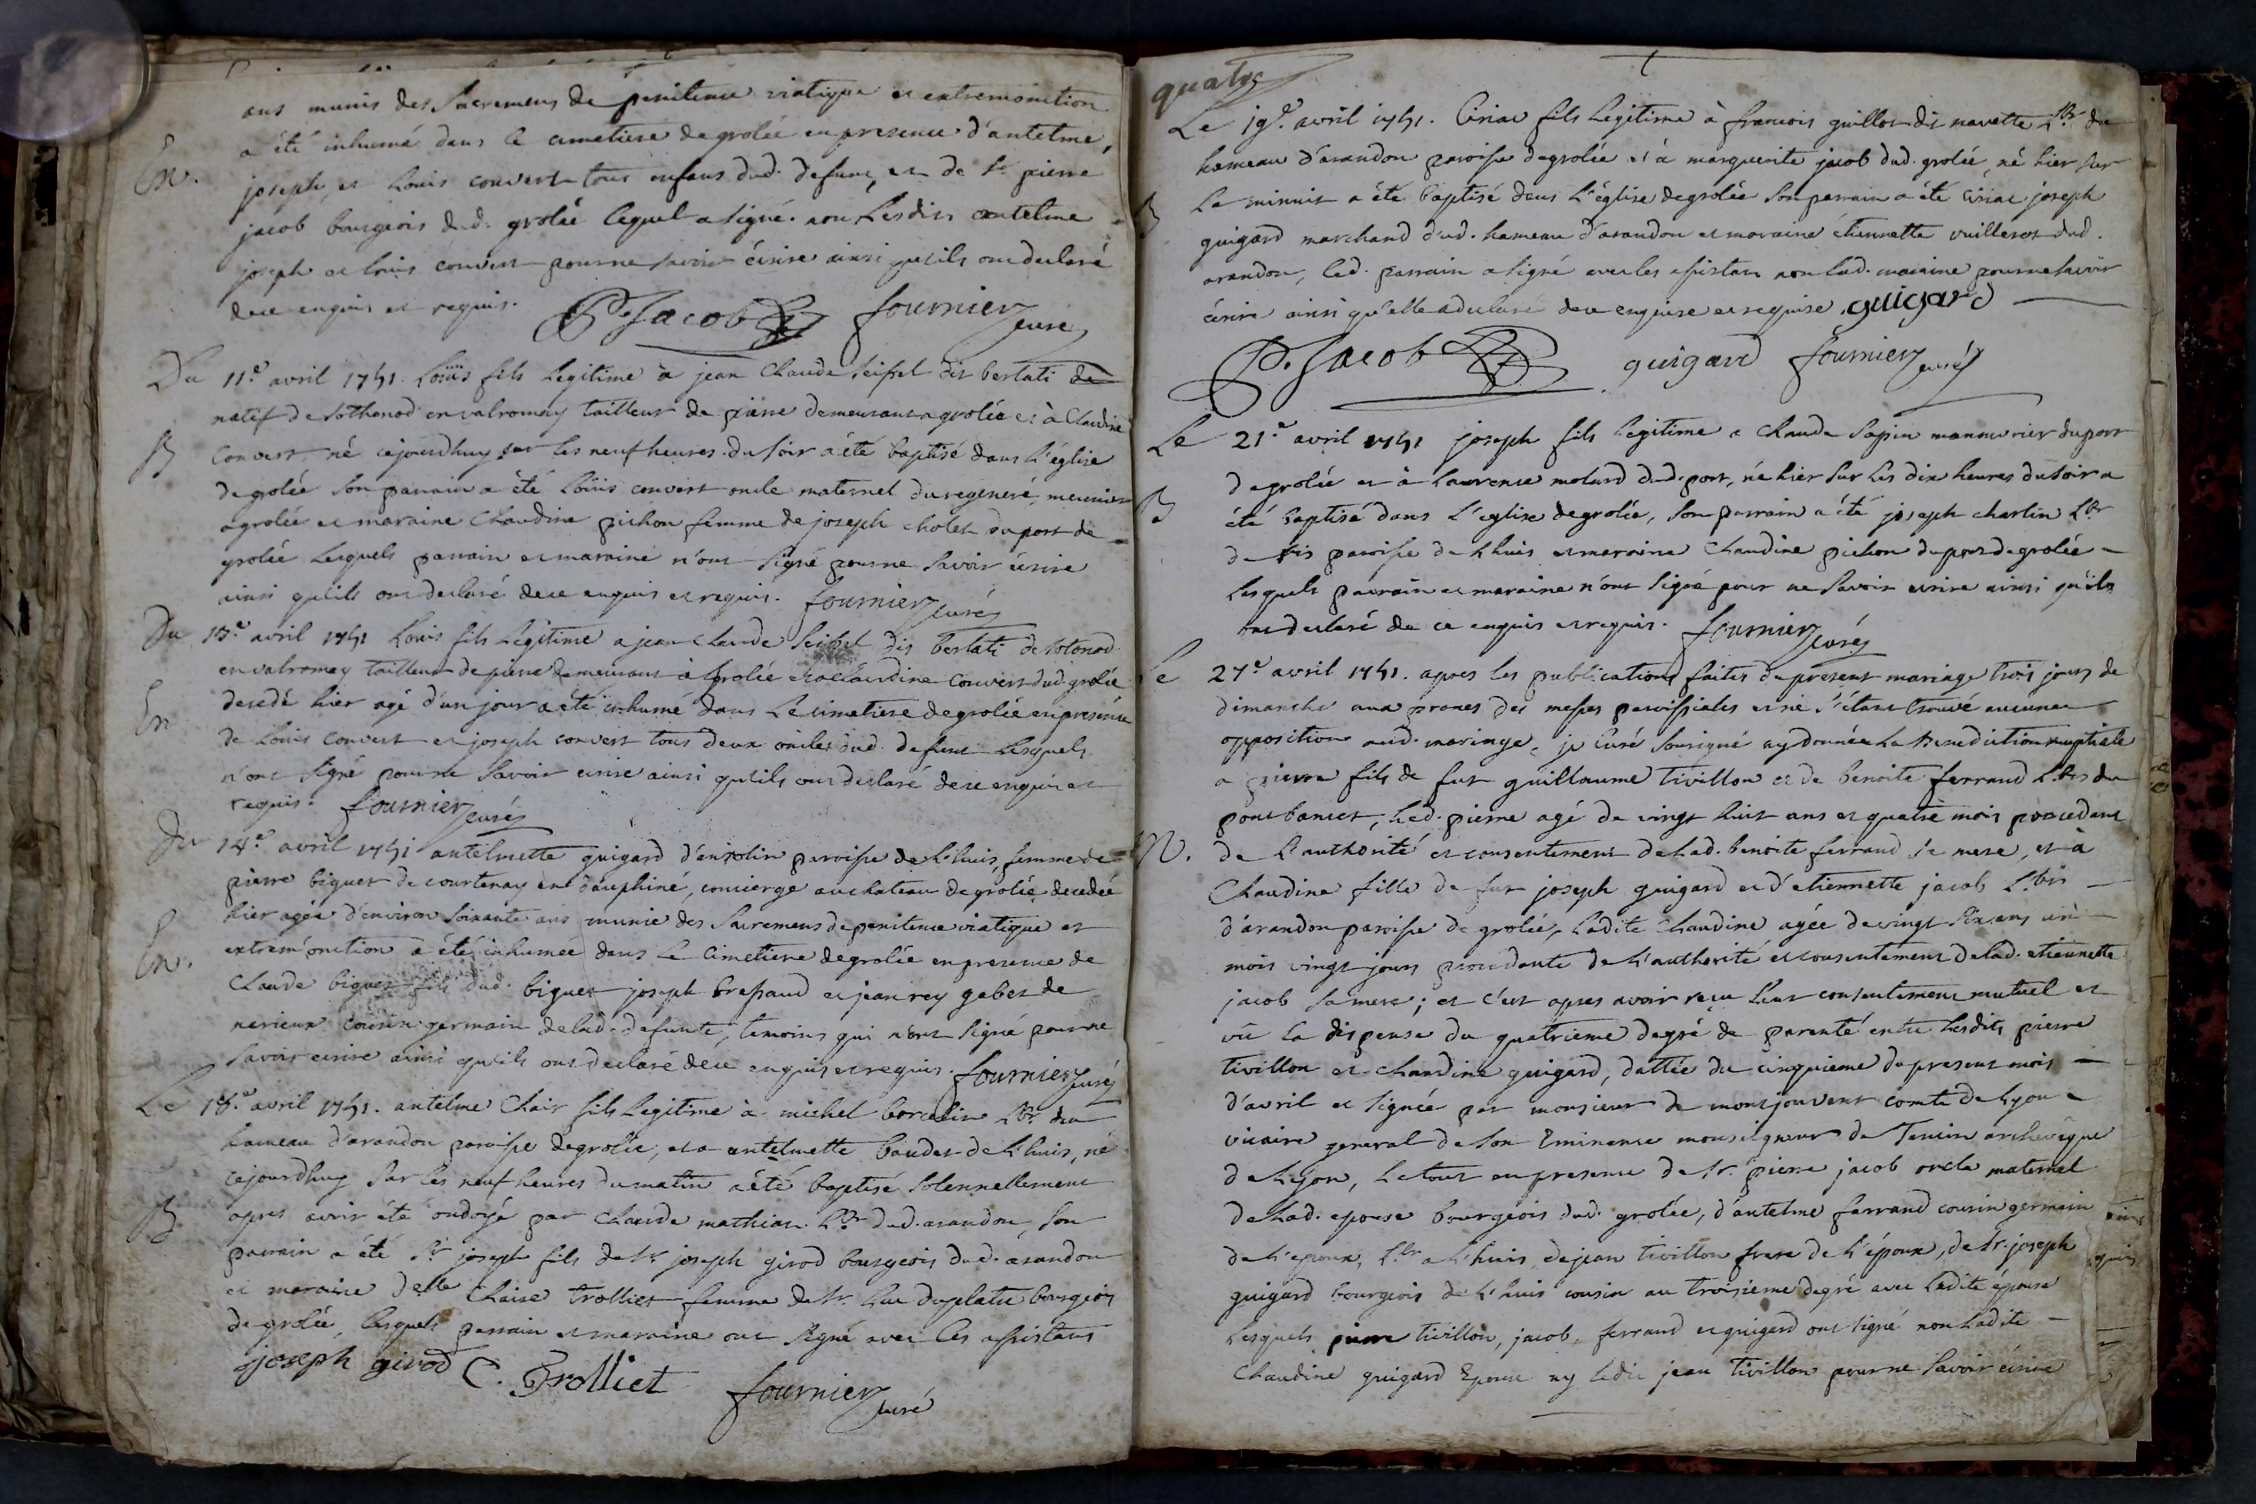 ans munis des Sacremens de penitence viatique et extremonction
En.
a été inhumé dans le cimetiere de grolée en presence d'antelme,
joseph, et Louis convert tous enfans dud. defunt, et de Sr. pierre
jacob bourgeois dud. grolée lequel a signé non lesdits antelme
joseph et louis convert pour ne savoir écrire ainsi qu'ils ont declaré
de ce enquis et requis. P. Jacob fournier curé
Du 11e. avril 1751. Louis fils legitime à jean Claude Seissel dit bertati de
natif de Sothonod en valromay tailleur de pierre demeurant a grolée et à Claudine
B
Convert né cejourdhuy sur les neuf heures du soir a été baptisé dans l'église
de grolée son parrain a été Louis convert oncle maternel du regeneré, meunier
a grolée et maraine Claudine pichon femme de joseph cholet du port de
grolée lesquels parrain et maraine n'ont signé pour ne savoir écrire
ainsi qu'ils ont declaré de ce enquis et requis. fournier curé
Du 13e. avril 1751 Louis fils legitime a jean Claude Seissel dit bertati de Sotonod
en valromay tailleur de pierre demeurant à grolée et a Claudine Convert dud. grolée
En
decedé hier agé d'un jour a été inhumé dans le cimetiere de grolée en presence
de Louis convert et joseph convert tous deux oncles dud. defunt lesquels
n'ont signé pour ne savoir ecrire ainsi qu'ils ont declaré de ce enquis et
requis. fournier curé
Du 14e. avril 1751 antelmette guigard d'anjolin paroisse de Lhuis, femme de
pierre biguet de courtenay en dauphiné, concierge au chateau de grolée decedée
hier agée d'environ soixante ans munie des Sacremens de penitence viatique et
En.
extrem'onction a été inhumée dans le Cimetiere de grolée en presence de
Claude biguet fils dud. biguet joseph bressaud et jean rey gabet de
nerieux cousin germain de lad. defunte, temoins qui n'ont signé pour ne
savoir ecrire ainsi qu'ils ont declaré de ce enquis et requis. fournier curé
Le 18e. avril 1751. antelme Clair fils legitime à michel borcelin Lbr. du
hameau d'arandon paroisse de grolée, et a antelmette baudet de Lhuis, né
cejourdhuy sur les neuf heures du matin a été baptisé solennellement
B
apres avoir été ondoyé par Claude mathias Lbr. dud. arandon, son
parrain a été Sr. joseph fils de Sr. joseph girod bourgeois dud. arandon
et maraine Delle Claire trolliet femme de Sr. Luc duplatre bourgeois
de grolée, lesquels parrain et maraine ont signé avec les assistans
joseph girod C. Trolliet fournier curé
quatre
Le 19e. avril 1751. Ciriac fils legitime à francois guillot dit navette Lbr. du
hameau d'arandon paroisse de grolée et à marguerite jacob dud. grolée, né hier sur
B
le minuit a été baptisé dans l'église de grolée son parrain a été ciriac joseph
guigard marchand dud. hameau d'arandon et maraine étiennette vuillerot dud.
arandon, led. parrain a signé avec les assistans non lad. maraine pour ne savoir
écrire ainsi qu'elle a declaré de ce enquise et requise. guigard
P. Jacob guigard fournier curé
Le 21e. avril 1751 joseph fils legitime a Claude Sapin manouvrier du port
de grolée et à Laurence molard dud. port, né hier sur les dix heures du soir a
B
été baptisé dans l'eglise de grolée, son parrain a été joseph charlin Lbr
de vis paroisse de Lhuis et maraine Claudine pichon du port de grolée
lesquels parrain et maraine n'ont signé pour ne savoir ecrire ainsi qu'ils
ont declaré de ce enquis et requis. fournier curé
Le 27e. avril 1751. apres les publications faites du present mariage trois jours de
dimanche aux prones des messes paroissiales et ne s'étant trouvé aucune
opposition aud. mariage, je Curé soussigné ay donnée la Benediction nuptiale
a pierre fils de fut guillaume tivillon et de benoite ferrand Lbrs. du
pont bancet, led. pierre agé de vingt huit ans et quatre mois procedant
M.
de l'authorité et consentement de lad. benoite ferrand se mere, et à
Claudine fille de fut joseph guigard et d'etiennette jacob Lbrs
d'arandon paroisse de grolée, ladite Claudine agée de vingt six ans un
mois vingt jours procedante de l'authorité et consentement de lad. etiennette
jacob sa mere; et c'est apres avoir reçu leur consentement mutuel et
vû la dispense du quatrieme degré de parenté entre lesdits pierre
tivillon et Claudine guigard, dattée du cinquieme du present mois
d'avril et signée par monsieur de montjouvent comte de Lyon
vicaire general de son Eminence monseigneur de Tencin archevêque
de Lyon, le tout en presence de Sr. pierre jacob oncle maternel
de lad. epouse bourgeois dud. grolée, d'antelme ferrand cousin germain
de l'epoux, Lbr a Lhuis, de jean tivillon frere de l'époux, de Sr. joseph
guigard bourgeois de Lhuis cousin au troisieme degré avec ladite épouse
lesquels pierre tivillon, jacob, ferrand et guigard ont signé non ladite
Claudine guigard Epouse ny ledit jean tivillon pour ne savoir écrire